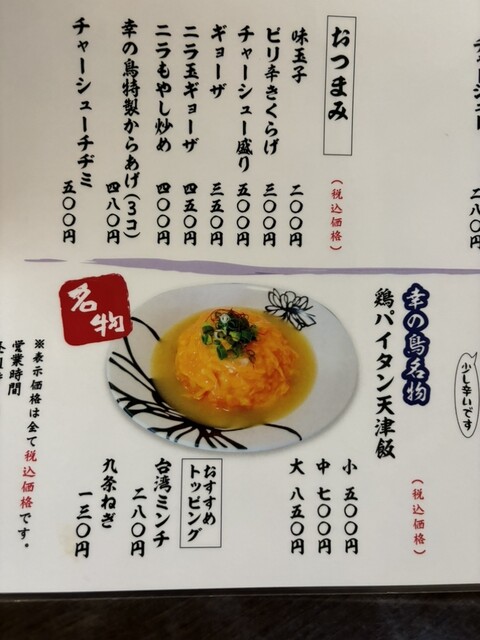 おつまみ
(税込価格)
味玉子
二〇〇円
ピリ辛きくらげ
三〇〇円
チャーシュー盛り
五〇〇円
ギョーザ
三五〇円
ニラ玉ギョーザ
四五〇円
ニラもやし炒め
四〇〇円
幸の鳥特製からあげ(3コ)
四八〇円
チャーシューチヂミ
五〇〇円
少し辛いです
幸の鳥名物
鶏パイタン天津飯
(税込価格)
小 五〇〇円
中 七〇〇円
大 八五〇円
名物
おすすめ
トッピング
台湾ミンチ
二八〇円
九条ねぎ
一三〇円
※表示価格は全て税込価格です。
営業時間